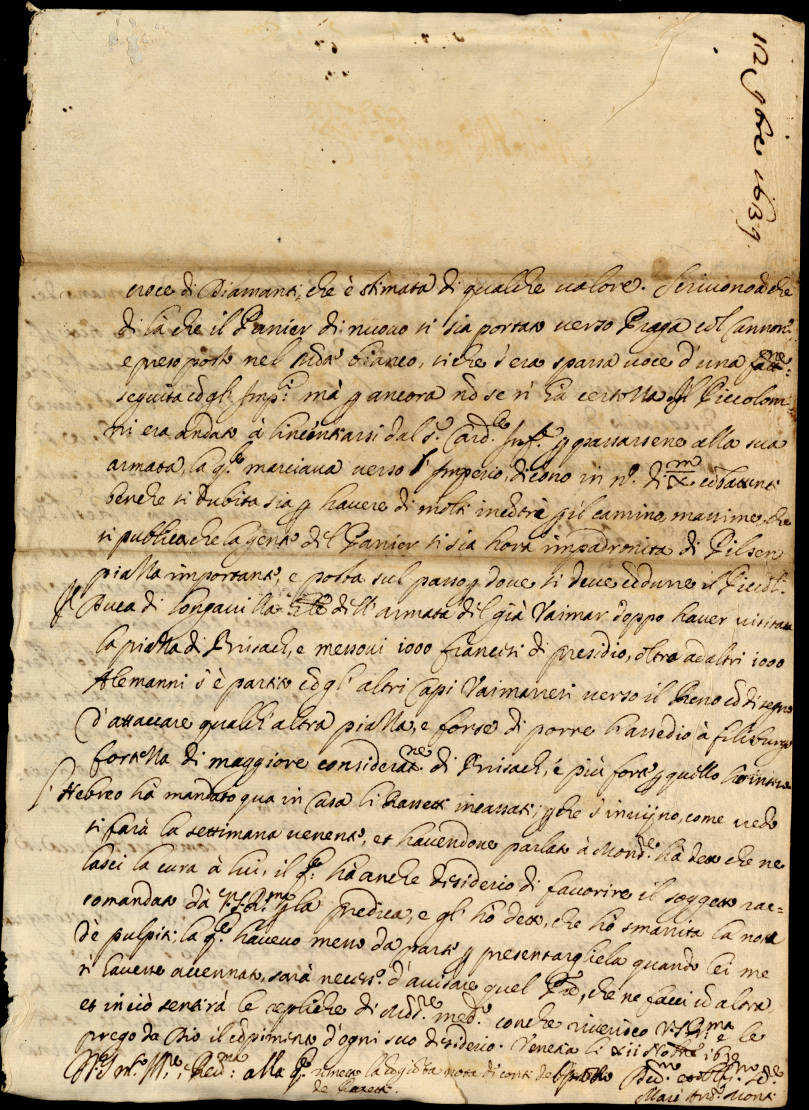 12 9bre 1639.
croce di Diamanti, che è stimata di qualche valore. Scrivono anche
di là che il Panier di nuovo si sia portato verso Praga col Cannone
e preso posto nel bianco, siche s'era sparsa voce d'una fatt.ne
seguita cõ gl' Imp.i mà ancora nõ se n'hà certezza Il Piccolomi-
ni era andato à dal S.r Card.le Inf.e p passarsene alla sua
armata, la q.le marciava verso l'Imperio, dicono in n.o di X.m cõbattenti
benche si dubita sia p havere di molti incõtri p il camino, massime che
si publica che la gente del Panier si sia hora impadronita di Pilsen
piazza importante, e posta sul passo p dove si deve cõdurre il Piccol.i
Il Duca di Longavilla dell'armata del già Vaimar doppo haver visitata
la piazza di Brisach, e messovi 1000 francesi di presidio, oltre ad altri 1000
Alemanni s'è partito cõ gl'altri Capi Vaimaresi verso il Reno cõ disegno
d'attaccare qualch'altra piazza, e forse di porre l'assedio à filisburgo
fortezza di maggiore considerat.ne di Brisach, e più forte p quello
l'Hebreo hà mandato qua in Casa li Rasetti incassati; p che s'invijno, come credo
si farà la settimana ventura, et havendone parlato à Mons.r hà detto che ne
lasci la cura à lui, il q.le hà anche desiderio di favorire il soggetto rac-
comandato dà V.S.R.ma p la predica, e gl'hò detto, che hò smarrita la nota
de pulpiti la q.le havevo messo da parte p presentargliela quando lei me
l'havesse accennato, sarà necess.o d'avvisare quel P.re, che ne facci cõ altra,
et in ciò sentirà le repliche di Mons.r med.o con che riverisco V.S.R.ma e le
prego da Dio il cõpimento d'ogni suo desiderio. Venetia li XII 9bre 1639
Di V.S. M.to Ill.re e Rev.ma alla q.le rimetto la cõgiõta nota di conti
de Rasetti.